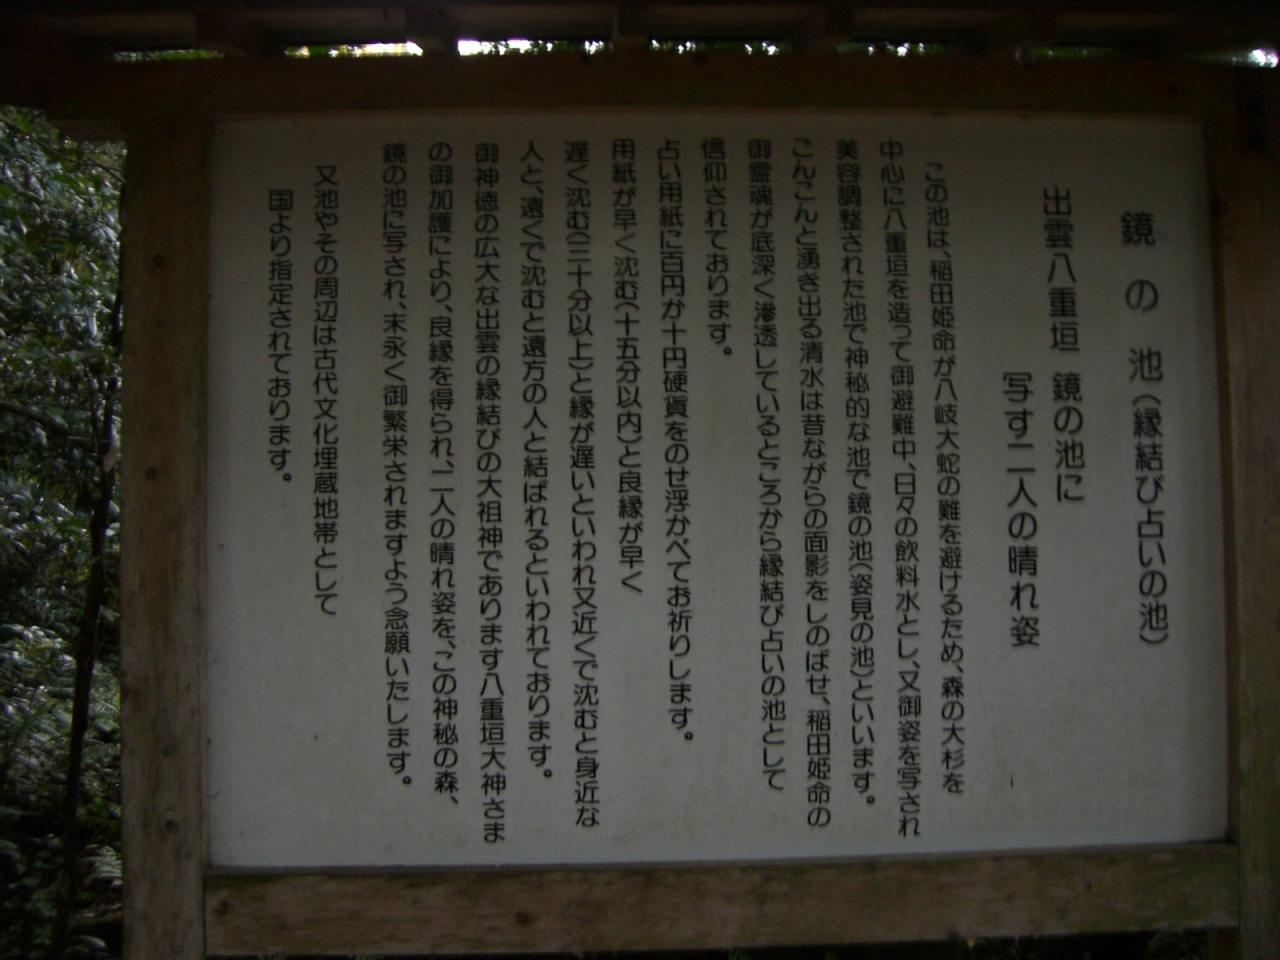 鏡の池(縁結び占いの池)
出雲八重垣 鏡の池に
写す二人の晴れ姿
この池は、稲田姫命が八岐大蛇の難を避けるため、森の大杉を
中心に八重垣を造って御避難中、日々の飲料水とし、又御姿を写され
美容調整された池で神秘的な池で鏡の池(姿見の池)といいます。
こんこんと湧き出る清水は昔ながらの面影をしのばせ、稲田姫命の
御霊魂が底深く滲透しているところから縁結び占いの池として
信仰されております。
占い用紙に百円か十円硬貨をのせ浮かべてお祈りします。
用紙が早く沈む(十五分以内)と良縁が早く
遅く沈む(三十分以上)と縁が遅いといわれ又近くで沈むと身近な
人と、遠くで沈むと遠方の人と結ばれるといわれております。
御神徳の広大な出雲の縁結びの大祖神であります八重垣大神さま
の御加護により、良縁を得られ、二人の晴れ姿を、この神秘の森、
鏡の池に写され、末永く御繁栄されますよう念願いたします。
又池やその周辺は古代文化埋蔵地帯として
国より指定されております。